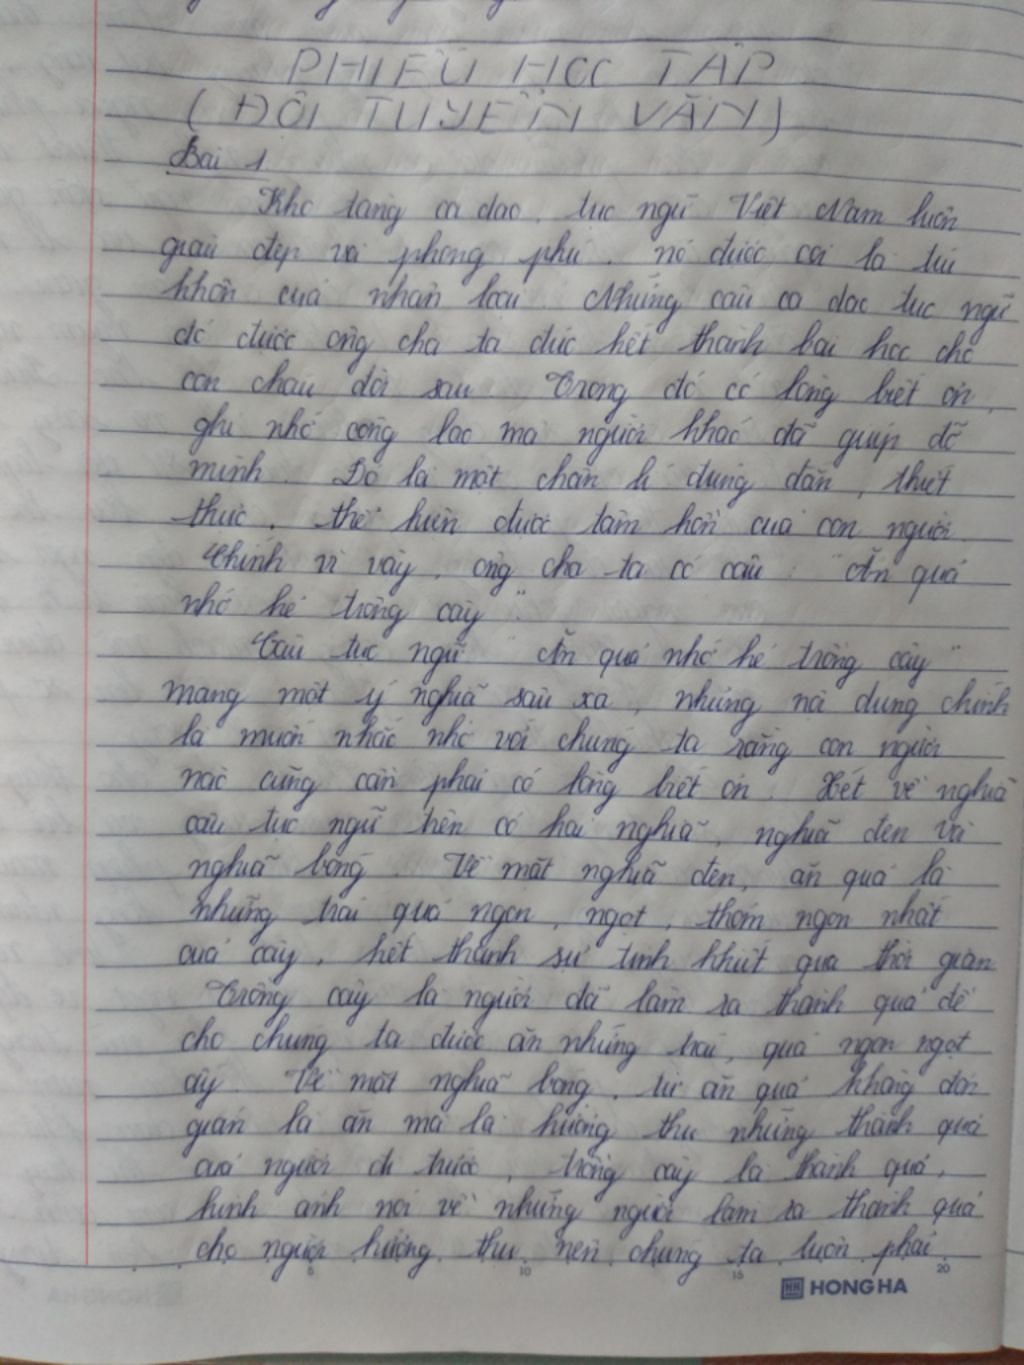 PHIẾU HỌC TẬP
(ĐỘI TUYỂN VĂN)
Bài 1
Kho tàng ca dao, tục ngữ Việt Nam luôn
giàu đẹp và phong phú, nó được coi là túi
khôn của nhân loại. Những câu ca dao tục ngữ
đó được ông cha ta đúc kết thành bài học cho
con cháu đời sau. Trong đó có lòng biết ơn,
ghi nhớ công lao mà người khác đã giúp đỡ
mình. Đó là một chân lí đúng đắn, thiết
thực, thể hiện được tâm hồn của con người.
Chính vì vậy, ông cha ta có câu: "Ăn quả
nhớ kẻ trồng cây"
Câu tục ngữ "Ăn quả nhớ kẻ trồng cây"
mang một ý nghĩa sâu xa, nhưng nội dung chính
là muốn nhắc nhở với chúng ta rằng con người
nào cũng cần phải có lòng biết ơn. Xét về nghĩa
câu tục ngữ trên có hai nghĩa, nghĩa đen và
nghĩa bóng. Về mặt nghĩa đen, ăn quả là
những trái quả ngon, ngọt, thơm ngon nhất
của cây, kết thành sự tinh khiết qua thời gian
Trồng cây là người đã làm ra thành quả để
cho chúng ta được ăn những trái, quả ngon ngọt
ấy. Về mặt nghĩa bóng, từ ăn quả không đơn
giản là ăn mà là hưởng thụ những thành quả
của người đi trước, trồng cây là thành quả,
hình ảnh nói về những người làm ra thành quả
cho người hưởng thụ nên chúng ta luôn phải
5 10 15 20
HONG HA